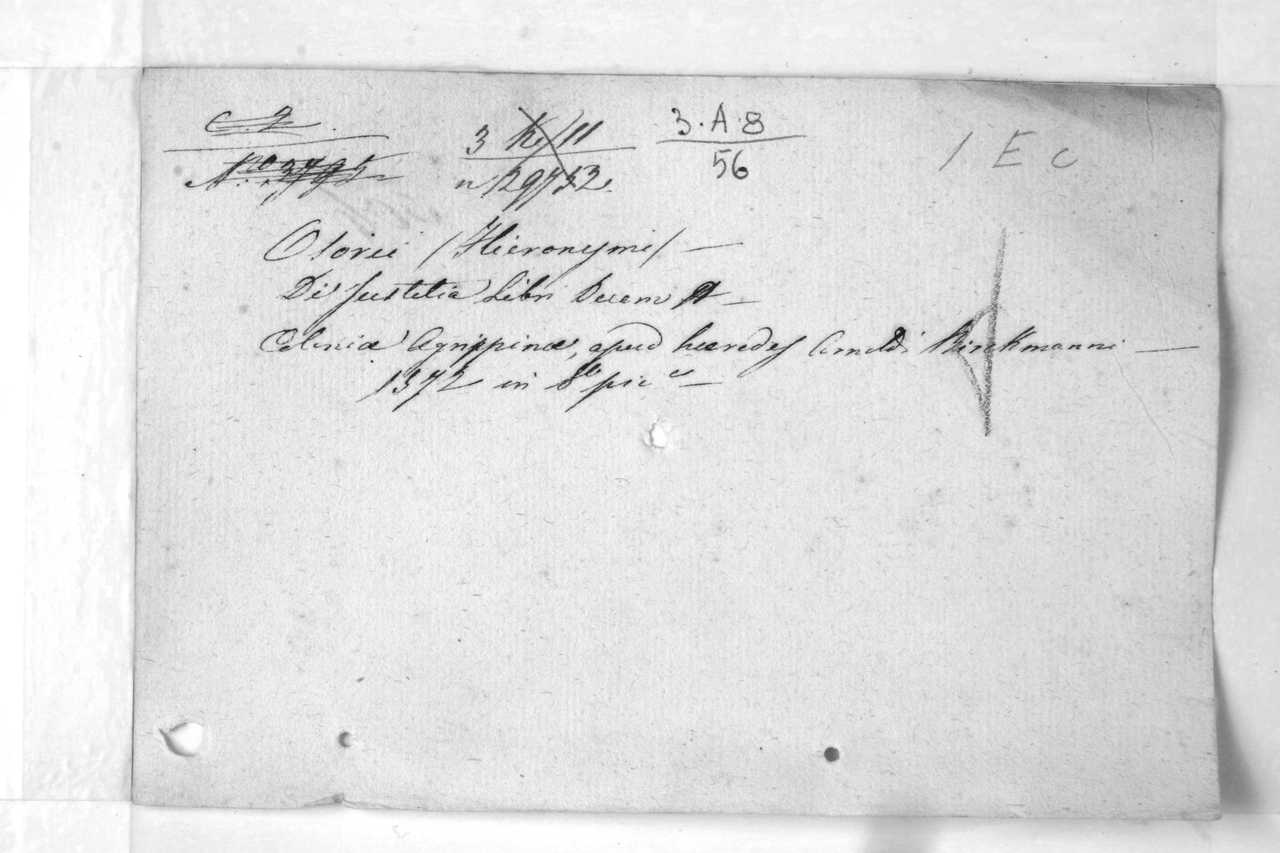 C. 2.
N.ro 3795
3 K/11
n 29753
3.A.8
56
1 E c
Osorii (Hieronymi) —
De Justitia Libri Decem —
Coloniæ Agrippinæ, apud hæredes Arnoldi Birckmanni —
1572 in 8.º pic.º —